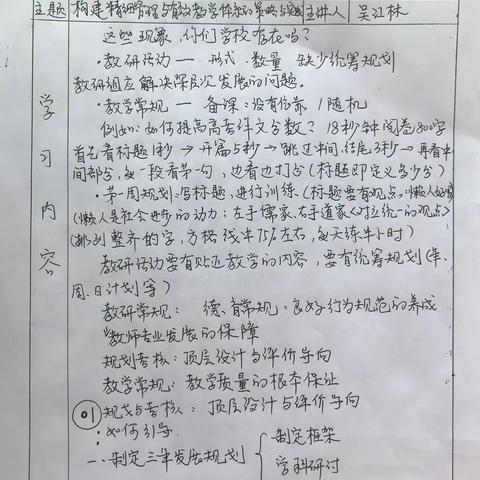 主题 构建精细管理与有效教学体系的策略与实践 主讲人 吴江林
学习内容
这些现象,你们学校存在吗?
·教研活动 — 形式、数量 缺少统筹规划
教研组应解决深层次发展的问题。
·教学常规 — 备课:没有依靠 / 随机
例如:如何提高高考语文分数? 18秒钟阅卷800字
首先看标题1秒 → 开篇5秒 → 跳过中间,结尾3秒 → 再看中
间部分,每一段看第一句,也看也打分(标题即定义多少分)
·第一周规划:写标题,进行训练.(标题要有观点。
(懒人是社会进步的动力;左手儒家、右手道家<对立统一的观点>
整齐的字,方格线中75%左右,每天练半小时)
教研活动要有贴近教学的内容,要有统筹规划(年、
周、日计划等)
教研常规: 德育常规:良好行为规范的养成
教师专业发展的保障
规划考核:顶层设计与评价导向
教学常规:教学质量的根本保证
01 规划与考核:顶层设计与评价导向
:如何引导.
一.制定三年发展规划 { 制定框架
学科研讨